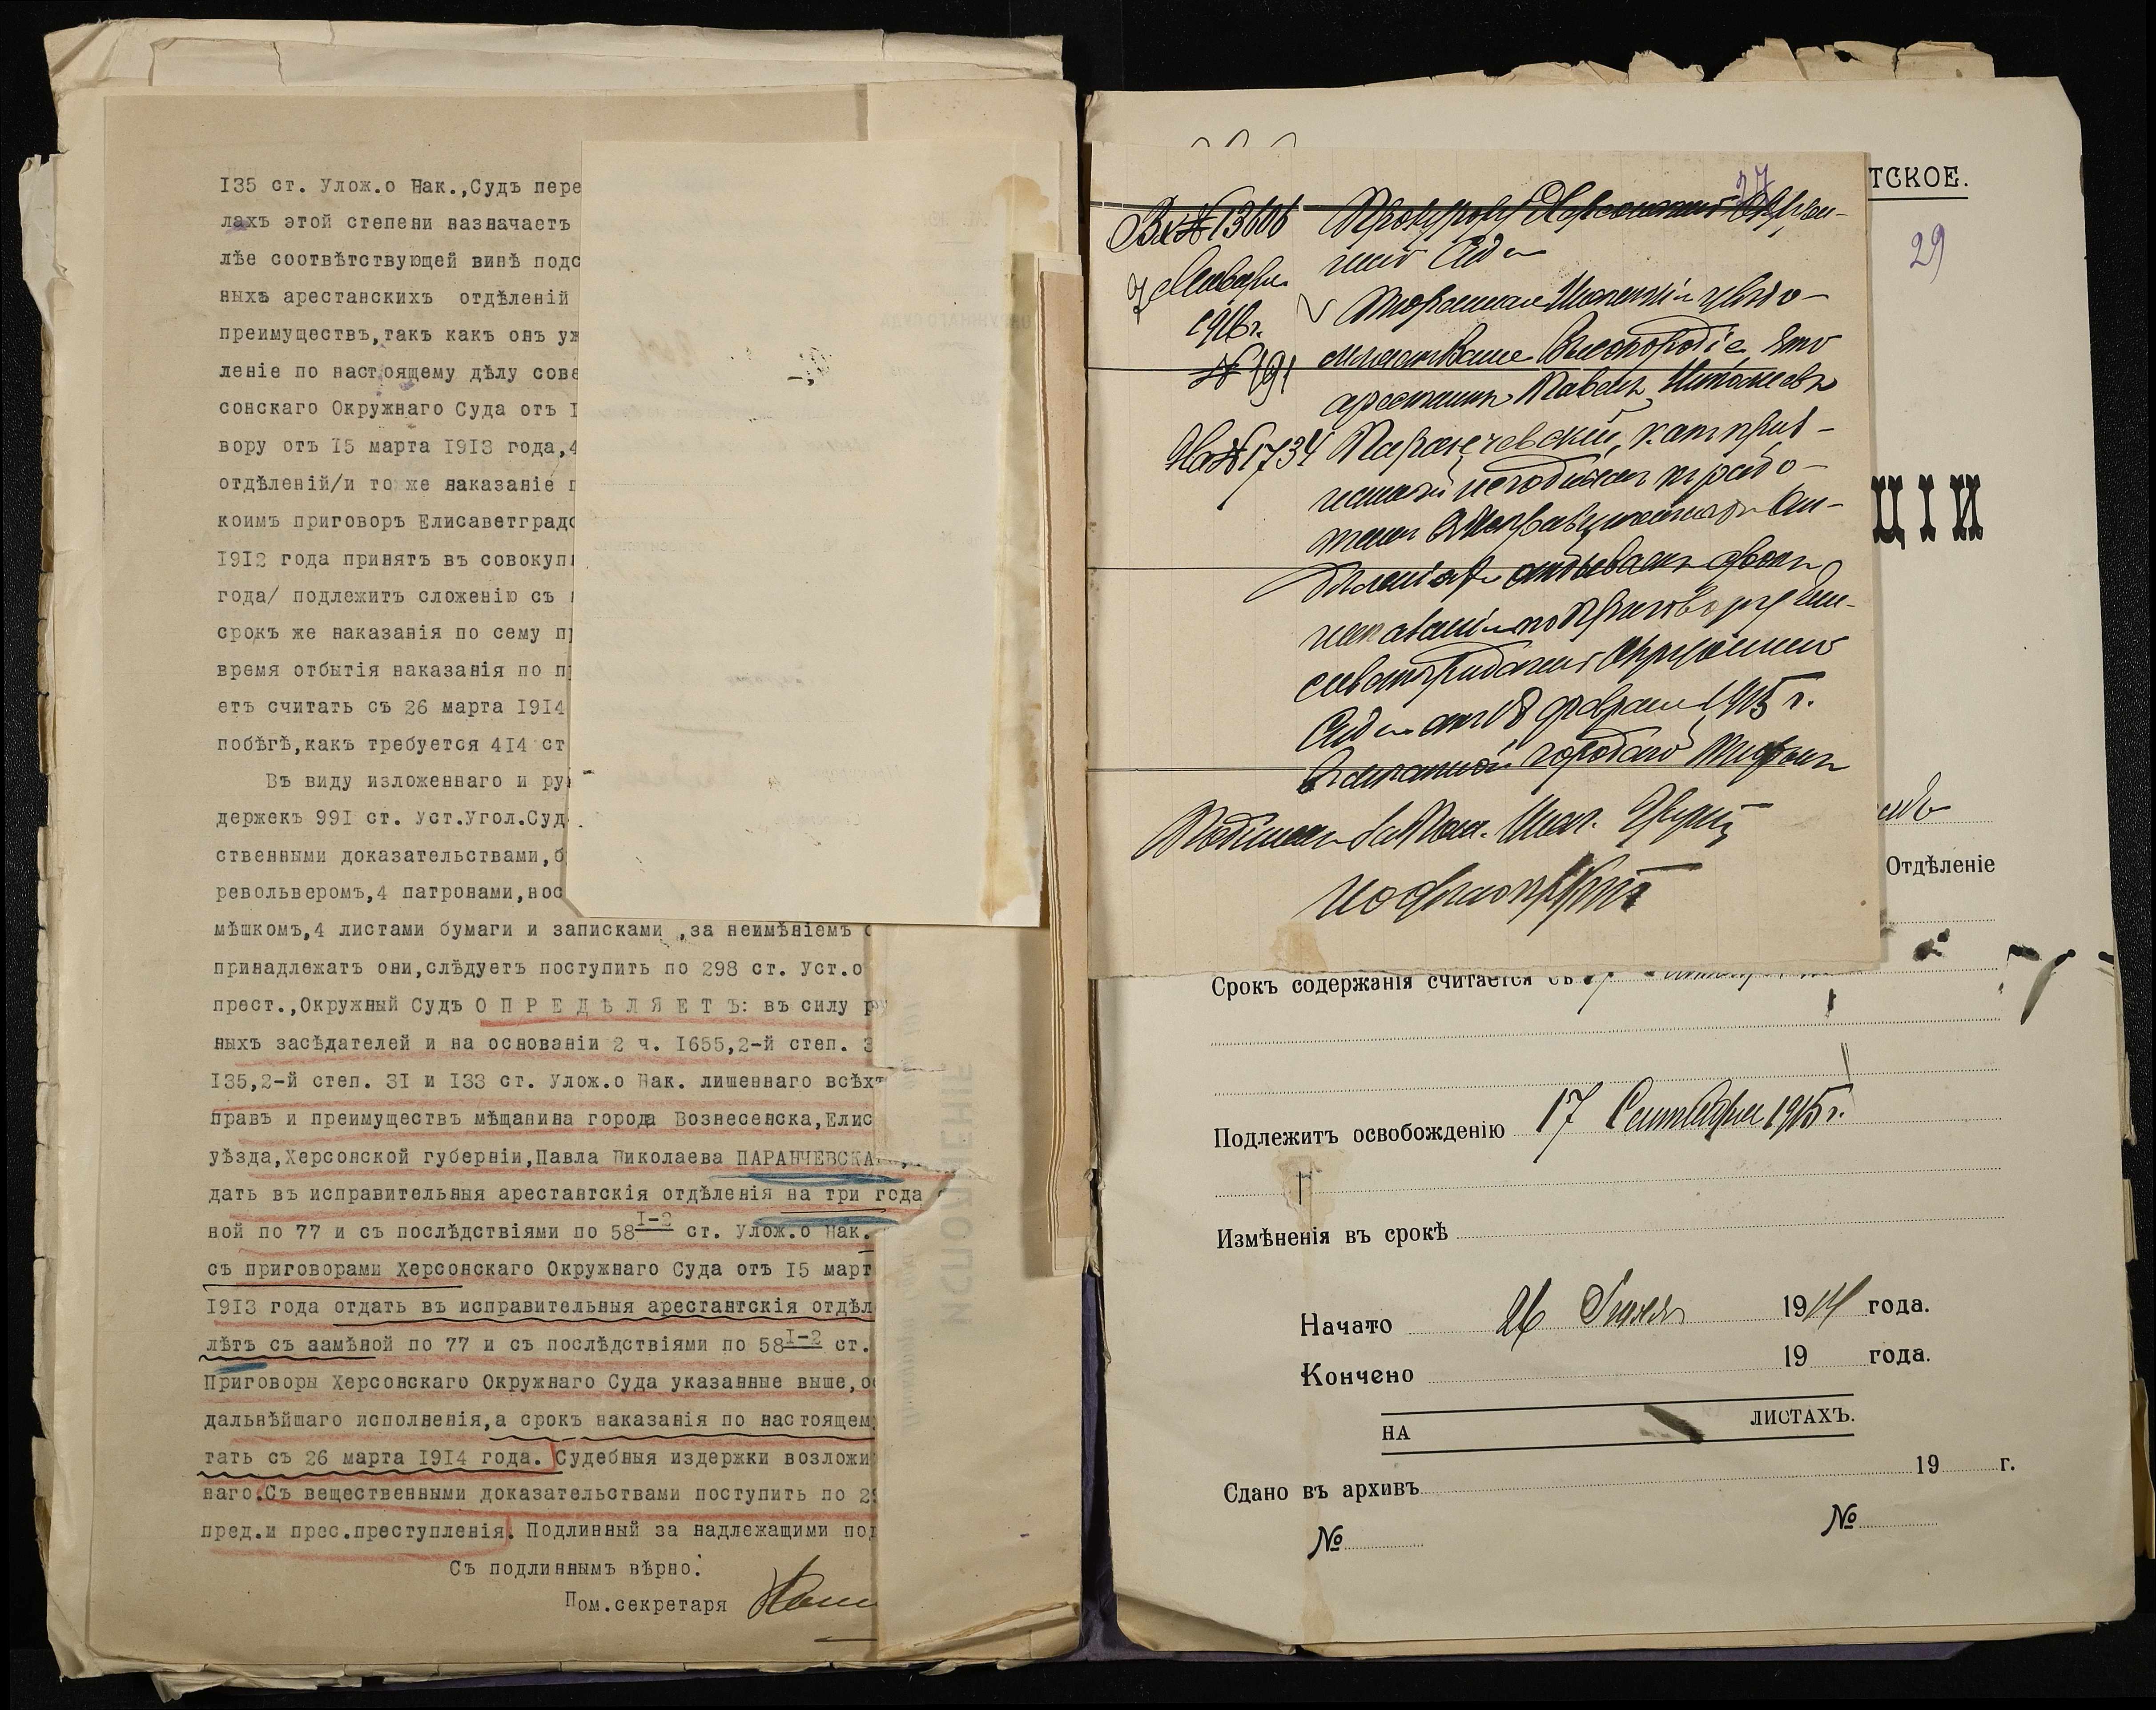 135 ст. Улож.о Нак.,Судъ пере
лахъ этой степени назначаетъ
лѣе соотвѣтствующей винѣ подс
ныхъ арестанскихъ отдѣленій
преимуществъ,такъ какъ онъ уж
леніе по настоящему дѣлу сове
сонскаго Окружнаго Суда отъ I
вору отъ 15 марта 1913 года,4
отдѣленій/и то же наказаніе п
коимъ приговоръ Елисаветградс
1912 года принятъ въ совокупн
года/ подлежитъ сложенію съ
срокъ же наказанія по сему п
время отбытія наказанія по п
етъ считать съ 26 марта 1914
побѣгѣ,какъ требуется 414 ст
Въ виду изложеннаго и ру
держекъ 991 ст. Уст.Угол.Суд
ственными доказательствами,б
револьверомъ,4 патронами,нос
мѣшкомъ,4 листами бумаги и записками ,за неимѣніемъ с
принадлежатъ они,слѣдуетъ поступить по 298 ст. Уст.о
прест.,Окружный Судъ О П Р Е Д Ѣ Л Я Е Т Ъ: въ силу р
ныхъ засѣдателей и на основаніи 2 ч. 1655,2-й степ. 3
135,2-й степ. 31 и 133 ст. Улож.о Нак. лишеннаго всѣхъ
правъ и преимуществъ мѣщанина города Вознесенска,Елис
уѣзда,Херсонской губерніи,Павла Николаева ПАРАНЧЕВСКА
дать въ исправительныя арестантскія отдѣленія на три года
ной по 77 и съ послѣдствіями по 58 I-2 ст. Улож.о Нак.
съ приговорами Херсонскаго Окружнаго Суда отъ 15 март
1913 года отдать въ исправительныя арестантскія отдѣл
лѣтъ съ замѣной по 77 и съ послѣдствіями по 58 I-2 ст.
Приговоры Херсонскаго Окружнаго Суда указанные выше,о
дальнѣйшаго исполненія,а срокъ наказанія по настоящем
тать съ 26 марта 1914 года. Судебныя издержки возложи
наго.Съ вещественными доказательствами поступить по 29
пред.и прес.преступленія. Подлинный за надлежащими под
Съ подлиннымъ вѣрно:
Пом.секретаря
ИСПОЛНЕНІЕ
27
Вх№13606
Прокурору Херсонскаго Окруж-
наго Суда
7 Января
1916г.
№191
Тюремная Инспекція увѣдо-
мляетъ Ваше Высокородіе, что
арестантъ Павелъ Николаевъ
На№1734
Паранчевскій,
негоднымъ къ рабо-
тамъ
отбываетъ
наказаніе по приговору Ели-
саветградскаго Окружнаго
Суда отъ 18 февраля 1915 г.
городской тюрьмѣ
Подписалъ за Пом. Инсп.
ТСКОЕ.
29
ЦІИ
Отдѣленіе
Срокъ содержанія считается съ
Подлежитъ освобожденію 17 Сентября 1915 г.
Измѣненія въ срокѣ
Начато 26 Іюля 1914 года.
Кончено 19 года.
НА ЛИСТАХЪ.
Сдано въ архивъ 19 г.
№ №